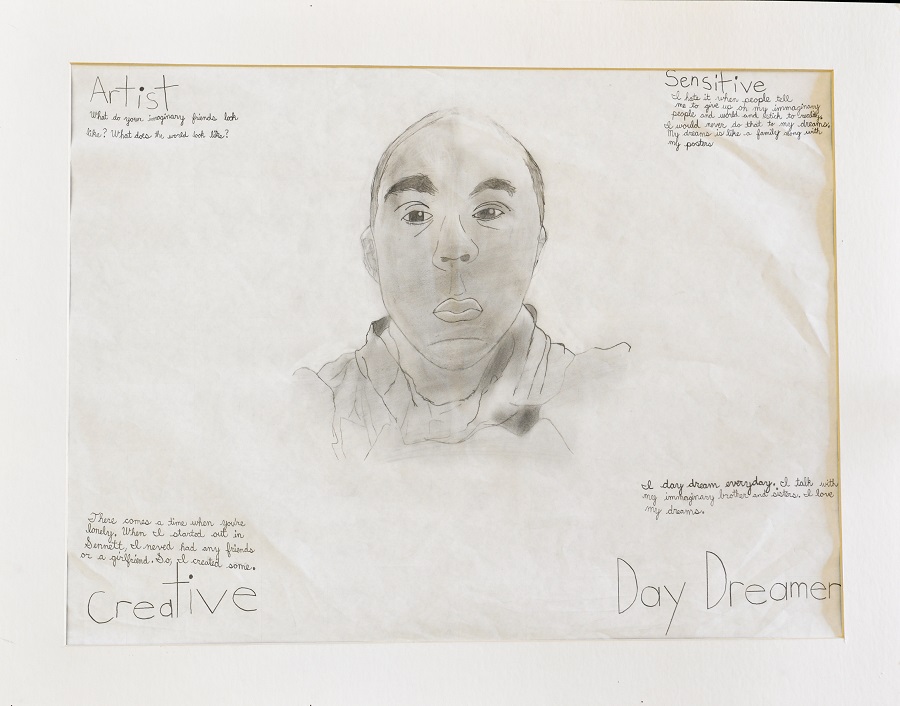 Artist
What do your imaginary friends look
like? What does the world look like?
Sensitive
I hate it when people tell
me to give up on my immaginary
people and world and stick to reality.
I would never do that to my dreams.
My dreams is like a family along with
my posters
I day dream everyday. I talk with
my immaginary brother and sisters. I love
my dreams.
Day Dreamer
There comes a time when you're
lonely. When I started out in
Sennett, I neved had any friends
or a girlfriend. So, I created some.
Creative